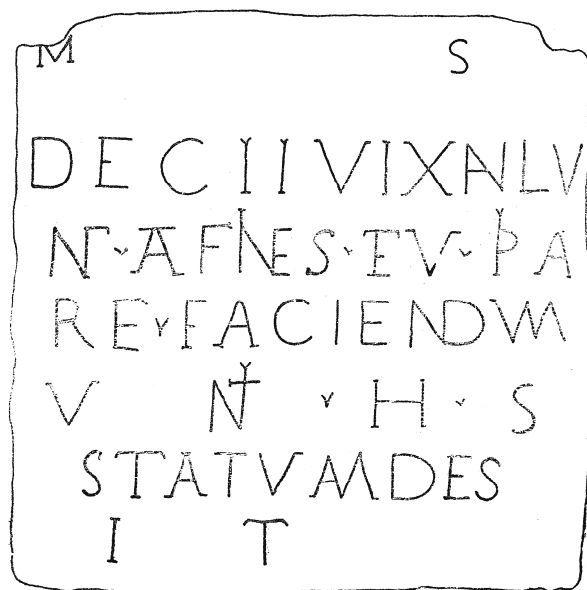 M S
DECII VIXANLV
NT·AFINES·ETV·PA
RE·FACIENDVM
V NT · H · S
STATVMDES
I T